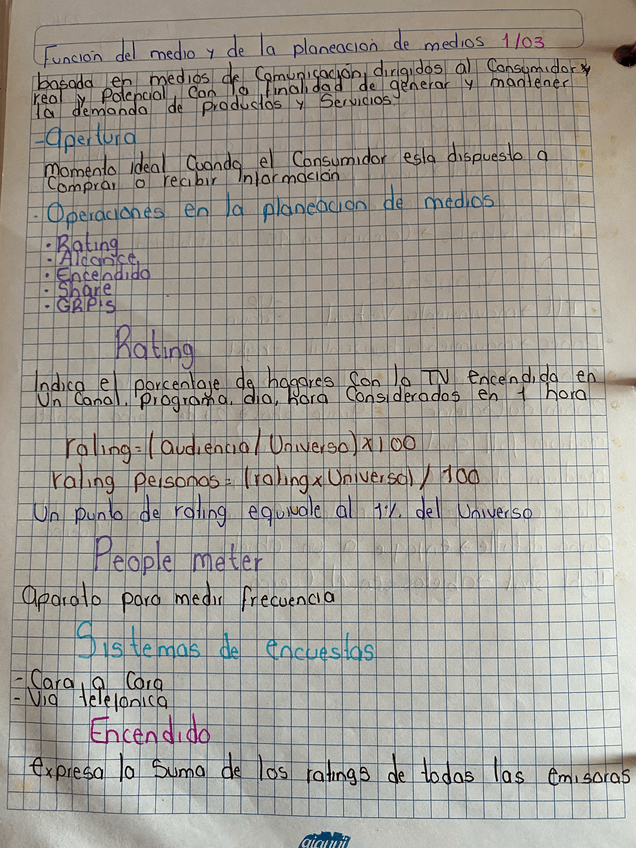 Función del medio y de la planeación de medios 1/03
basada en medios de Comunicación, dirigidos al Consumidor
real y potencial, con la finalidad de generar y mantener
la demanda de productos y Servicios
-Apertura
Momento ideal Cuando el Consumidor esta dispuesto a
Comprar o recibir información
- Operaciones en la planeación de medios
• Rating
• Alcance
• Encendido
• Share
• GRP's
Rating
Indica el porcentaje de hogares con la TV encendida en
Un Canal, Programa, dia, hora Considerados en 1 hora
rating=(audiencia/Universo)x100
rating personas=(ratingxUniverso)/100
Un punto de rating equivale al 1% del Universo
People meter
aparato para medir frecuencia
Sistemas de encuestas
- Cara a Cara
- Via telefonica
Encendido
expresa la Suma de los ratings de todas las emisoras